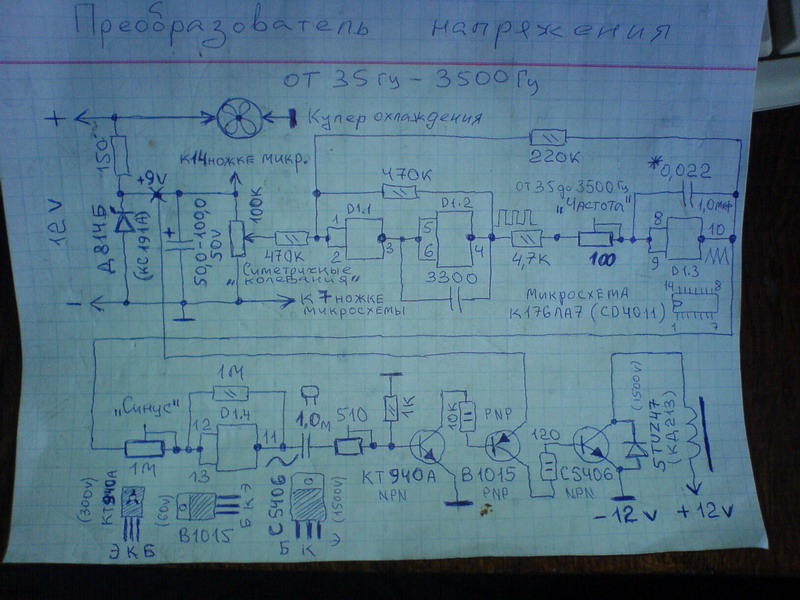 Преобразователь напряжения
от 35 Гц - 3500 Гц
+
Купер охлаждения
150
К 14 ножке микр.
220К
+9V
470К
от 35 до 3500 Гц
*0,022
12 V
Д 814 Б
(КС 191 А)
+
50,0-100,0
50V
100К
D1.1
D1.2
"Частота"
1,0мк
1
2
3
5
6
4
8
9
10
470К
4,7К
100
D1.3
"Симетричные колебания"
3300
Микросхема
К176ЛА7 (CD4011)
14
8
Р
1
7
К 7 ножке
микросхемы
1М
"Синус"
D1.4
12
13
11
1,0м
510
1К
10К
PNP
120
(1500V)
5TUZ47
(КД213)
1М
КТ940А
NPN
B1015
PNP
C5406
NPN
-12 V
+12V
(300V)
КТ940А
Э К Б
(60V)
B1015
Б К Э
C5406
(1500V)
Б К Э